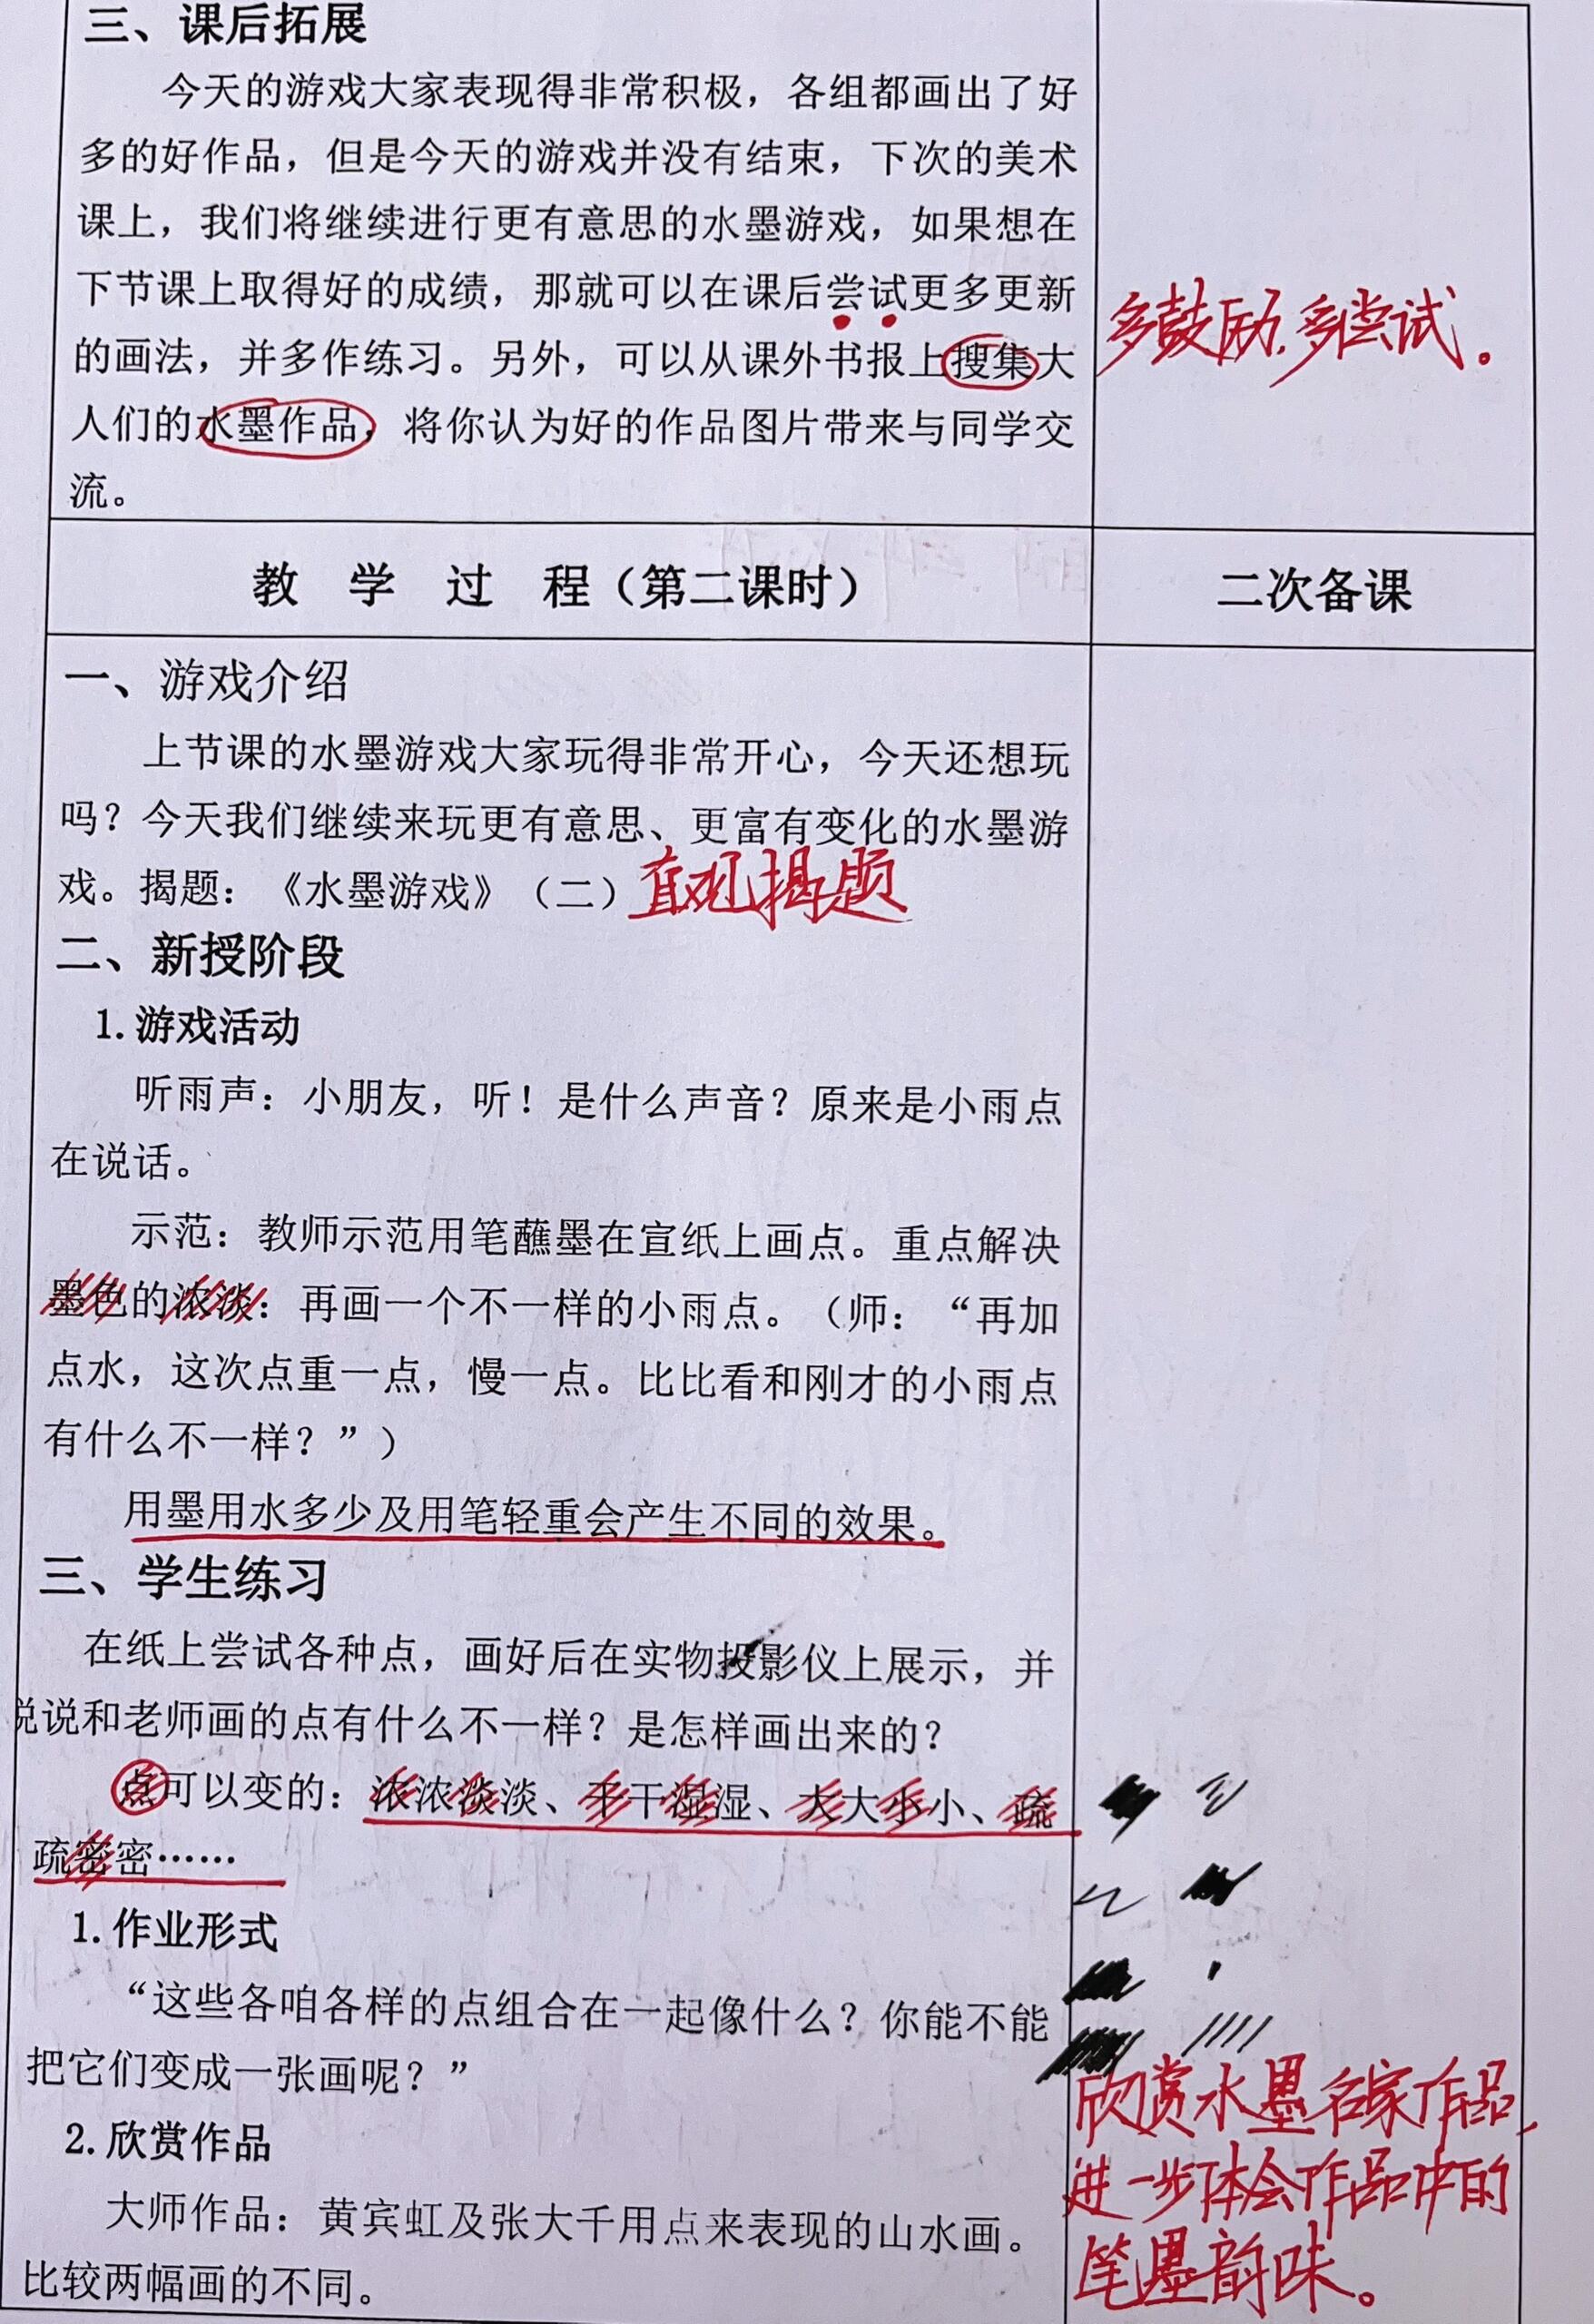 三、课后拓展
今天的游戏大家表现得非常积极，各组都画出了好
多的好作品，但是今天的游戏并没有结束，下次的美术
课上，我们将继续进行更有意思的水墨游戏，如果想在
下节课上取得好的成绩，那就可以在课后尝试更多更新
的画法，并多作练习。另外，可以从课外书报上搜集大
人们的水墨作品，将你认为好的作品图片带来与同学交
流。
多鼓励，多尝试。
教 学 过 程（第二课时）
二次备课
一、游戏介绍
上节课的水墨游戏大家玩得非常开心，今天还想玩
吗？今天我们继续来玩更有意思、更富有变化的水墨游
戏。揭题：《水墨游戏》（二）直观揭题
二、新授阶段
1.游戏活动
听雨声：小朋友，听！是什么声音？原来是小雨点
在说话。
示范：教师示范用笔蘸墨在宣纸上画点。重点解决
墨色的浓淡：再画一个不一样的小雨点。（师：“再加
点水，这次点重一点，慢一点。比比看和刚才的小雨点
有什么不一样？”）
用墨用水多少及用笔轻重会产生不同的效果。
三、学生练习
在纸上尝试各种点，画好后在实物投影仪上展示，并
说说和老师画的点有什么不一样？是怎样画出来的？
点可以变的：浓浓淡淡、干干湿湿、大大小小、疏
疏密密……
1.作业形式
“这些各咱各样的点组合在一起像什么？你能不能
把它们变成一张画呢？”
2.欣赏作品
大师作品：黄宾虹及张大千用点来表现的山水画。
比较两幅画的不同。
欣赏水墨名家作品，
进一步体会作品中的
笔墨韵味。